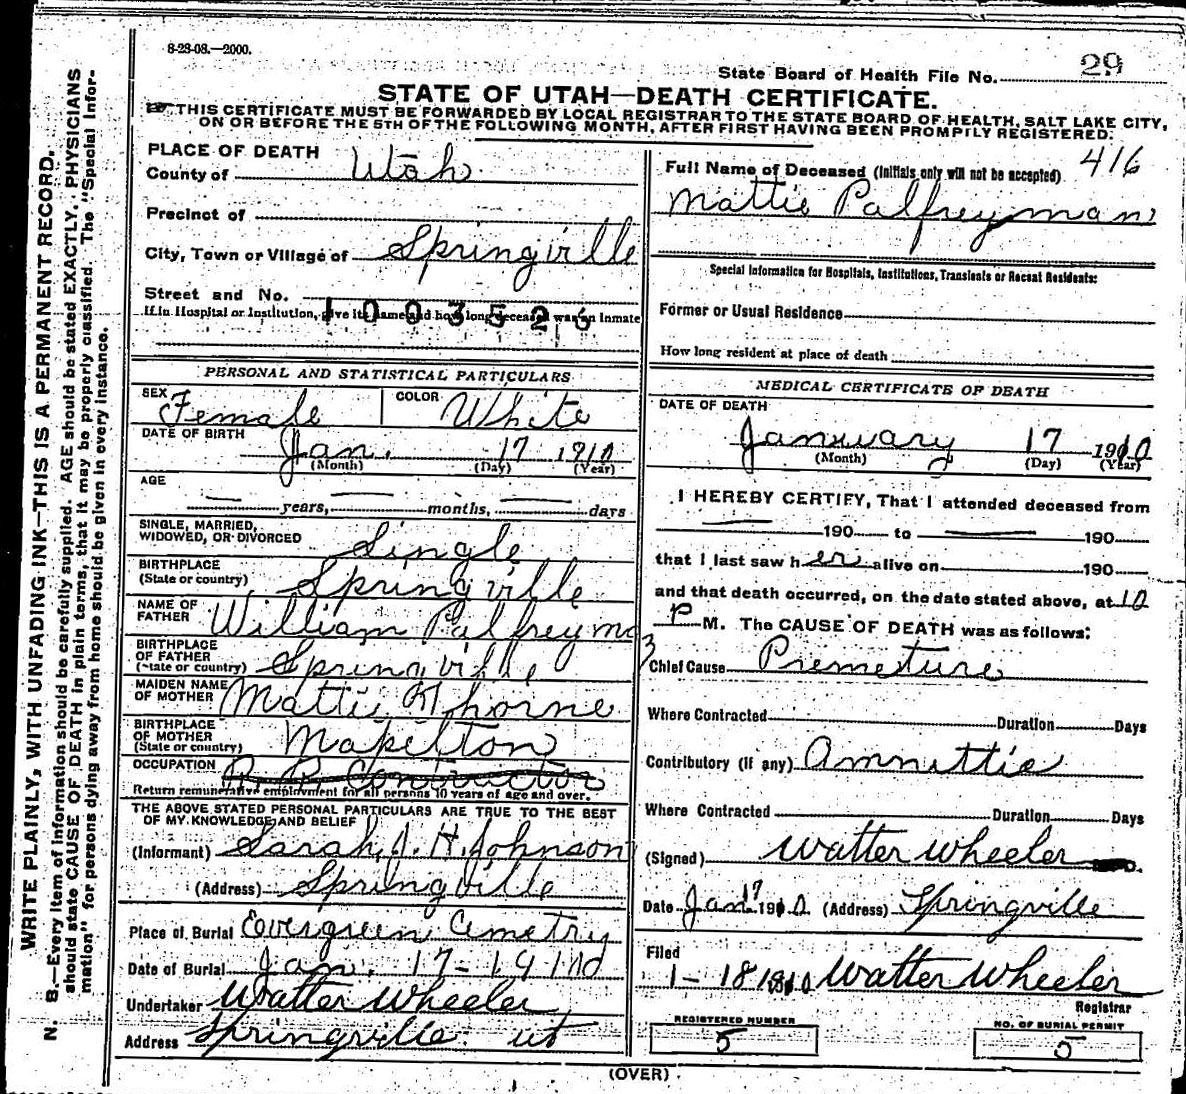 8-23-08.—2000.
State Board of Health File No. 29
STATE OF UTAH—DEATH CERTIFICATE.
THIS CERTIFICATE MUST BE FORWARDED BY LOCAL REGISTRAR TO THE STATE BOARD OF HEALTH, SALT LAKE CITY,
ON OR BEFORE THE 5TH OF THE FOLLOWING MONTH, AFTER FIRST HAVING BEEN PROMPTLY REGISTERED.
WRITE PLAINLY, WITH UNFADING INK—THIS IS A PERMANENT RECORD.
N. B.—Every item of information should be carefully supplied. AGE should be stated EXACTLY. PHYSICIANS
should state CAUSE OF DEATH in plain terms, that it may be properly classified. The "Special Infor-
mation" for persons dying away from home should be given in every instance.
PLACE OF DEATH
County of Utah
Precinct of
City, Town or Village of Springville
Street and No.
1003526
If in Hospital or Institution, give its name and how long deceased was an inmate
PERSONAL AND STATISTICAL PARTICULARS
SEX Female COLOR White
DATE OF BIRTH Jan. 17 1910
(Month) (Day) (Year)
AGE
years, months, days
SINGLE, MARRIED,
WIDOWED, OR DIVORCED Single
BIRTHPLACE
(State or country) Springville
NAME OF
FATHER William Palfreyma
BIRTHPLACE
OF FATHER
(State or country) Springville
MAIDEN NAME
OF MOTHER Mattie Thorne
BIRTHPLACE
OF MOTHER
(State or country) Mapelton
OCCUPATION R R Contractor
Return remunerative employment for all persons 10 years of age and over.
THE ABOVE STATED PERSONAL PARTICULARS ARE TRUE TO THE BEST
OF MY KNOWLEDGE AND BELIEF
(Informant) Sarah J. H. Johnson
(Address) Springville
Place of Burial Evergreen Cemetry
Date of Burial Jan. 17-1910
Undertaker Watter Wheeler
Address Springville. ut
416
Full Name of Deceased (Initials only will not be accepted)
Mattie Palfreyman
Special Information for Hospitals, Institutions, Transients or Recent Residents:
Former or Usual Residence
How long resident at place of death
MEDICAL CERTIFICATE OF DEATH
DATE OF DEATH
January 17 1910
(Month) (Day) (Year)
I HEREBY CERTIFY, That I attended deceased from
190 to 190
that I last saw her alive on 190
and that death occurred, on the date stated above, at 10
P M. The CAUSE OF DEATH was as follows:
Chief Cause Premeture
Where Contracted Duration Days
Contributory (if any)
Where Contracted Duration Days
(Signed) Watter Wheeler
Date Jan. 17 1910 (Address) Springville
Filed
1-18 1910 Watter Wheeler
Registrar
REGISTERED NUMBER
5
NO. OF BURIAL PERMIT
5
(OVER)